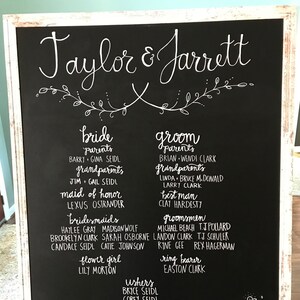 Taylor & Jarrett
bride
parents
BARRY + GINA SEIDL
grandparents
JIM + GAIL SEIDL
maid of honor
LEXUS OSTRANDER
bridesmaids
HAILEE GRAY MADISON WOLF
BROOKLYN CLARK SARAH OSBORNE
CANDACE SEIDL CATIE JOHNSON
flower girl
LILY MORTON
groom
parents
BRIAN + WENDI CLARK
grandparents
LINDA + BRUCE McDONALD
LARRY CLARK
best man
CLAY HARDESTY
groomsmen
MICHAEL BEACH TJ POLLARD
LANDON CLARK TJ SCHULER
RYNE GEE REX HAGERMAN
ring bearer
EASTON CLARK
ushers
BRYCE SEIDL
COREY SEIDL